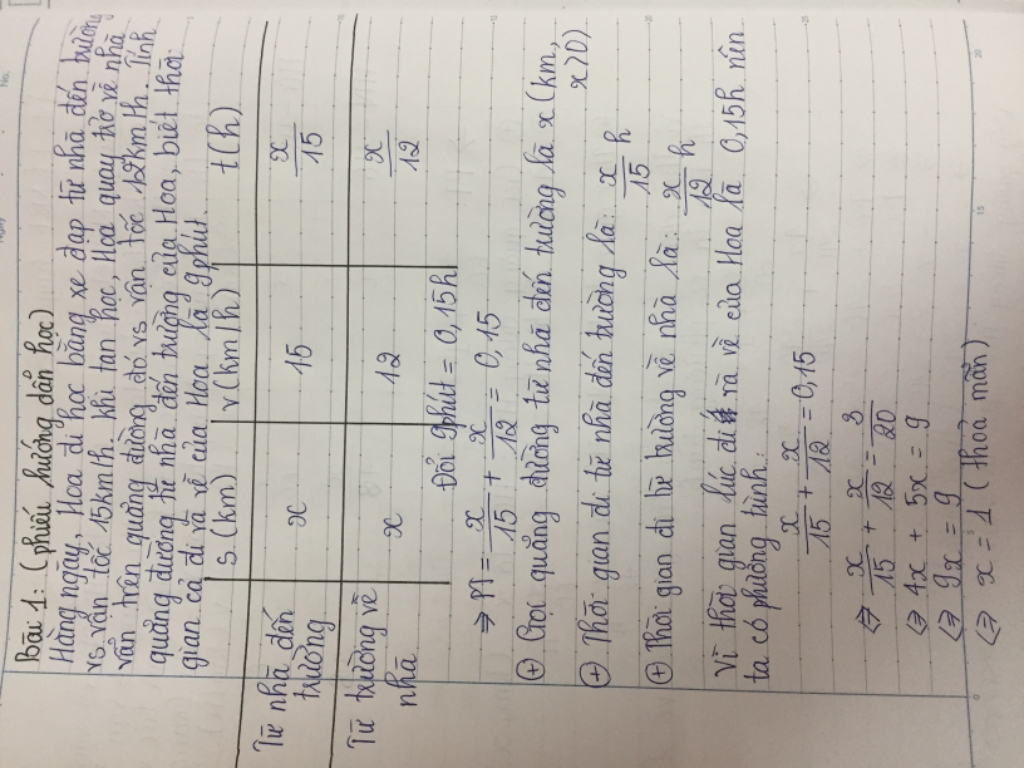 Bài 1: (phiếu hướng dẫn học)
Hằng ngày, Hoa đi học bằng xe đạp từ nhà đến trường
vs vận tốc 15km/h. Khi tan học, Hoa quay trở về nhà
vẫn trên quãng đường đó vs vận tốc 12km/h. Tính
quãng đường từ nhà đến trường của Hoa, biết thời
gian cả đi và về của Hoa là 9phút.
s (km) v(km/h) t(h)
Từ nhà đến trường x 15 x/15
Từ trường về nhà x 12 x/12
Đổi 9phút = 0,15h
⇒ PT = x/15 + x/12 = 0,15
⊕ Gọi quãng đường từ nhà đến trường là x (km,
x>0)
⊕ Thời gian đi từ nhà đến trường là: x/15 h
⊕ Thời gian đi từ trường về nhà là: x/12 h
Vì thời gian lúc đi và về của Hoa là 0,15h nên
ta có phương trình:
x/15 + x/12 = 0,15
⇔ x/15 + x/12 = 3/20
⇔ 4x + 5x = 9
⇔ 9x = 9
⇔ x = 1 (thỏa mãn)